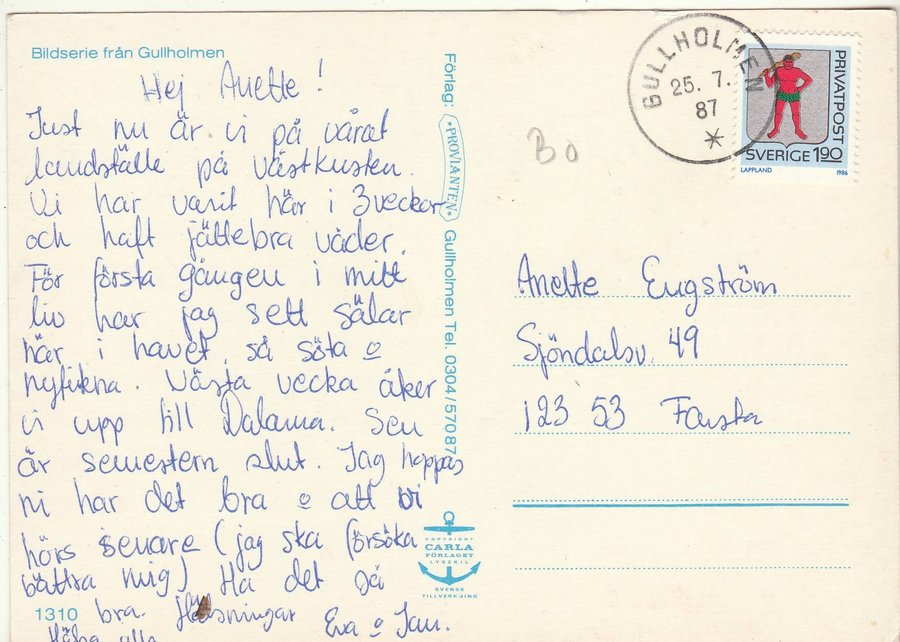 Bildserie från Gullholmen
Hej Anette!
Just nu är vi på vårat
landställe på västkusten.
Vi har varit här i 3 veckor
och haft jättebra väder.
För första gången i mitt
liv har jag sett sälar
här i havet, så söta o
nyfikna. Nästa vecka åker
vi upp till Dalarna. Sen
är semestern slut. Jag hoppas
ni har det bra o att vi
hörs senare (jag ska försöka
bättra mig) Ha det så
bra. Hälsningar
Eva o Jan.
alla
1310
Förlag: *PROVIANTEN* Gullholmen Tel. 0304/57087
COPYRIGHT
CARLA
FÖRLAGET
LYSEKIL
SVENSK
TILLVERKNING
Bo
GULLHOLMEN
25.7.
87
PRIVATPOST
SVERIGE 1.90
LAPPLAND 1986
Anette Engström
Sjöndalsv. 49
123 53 Farsta